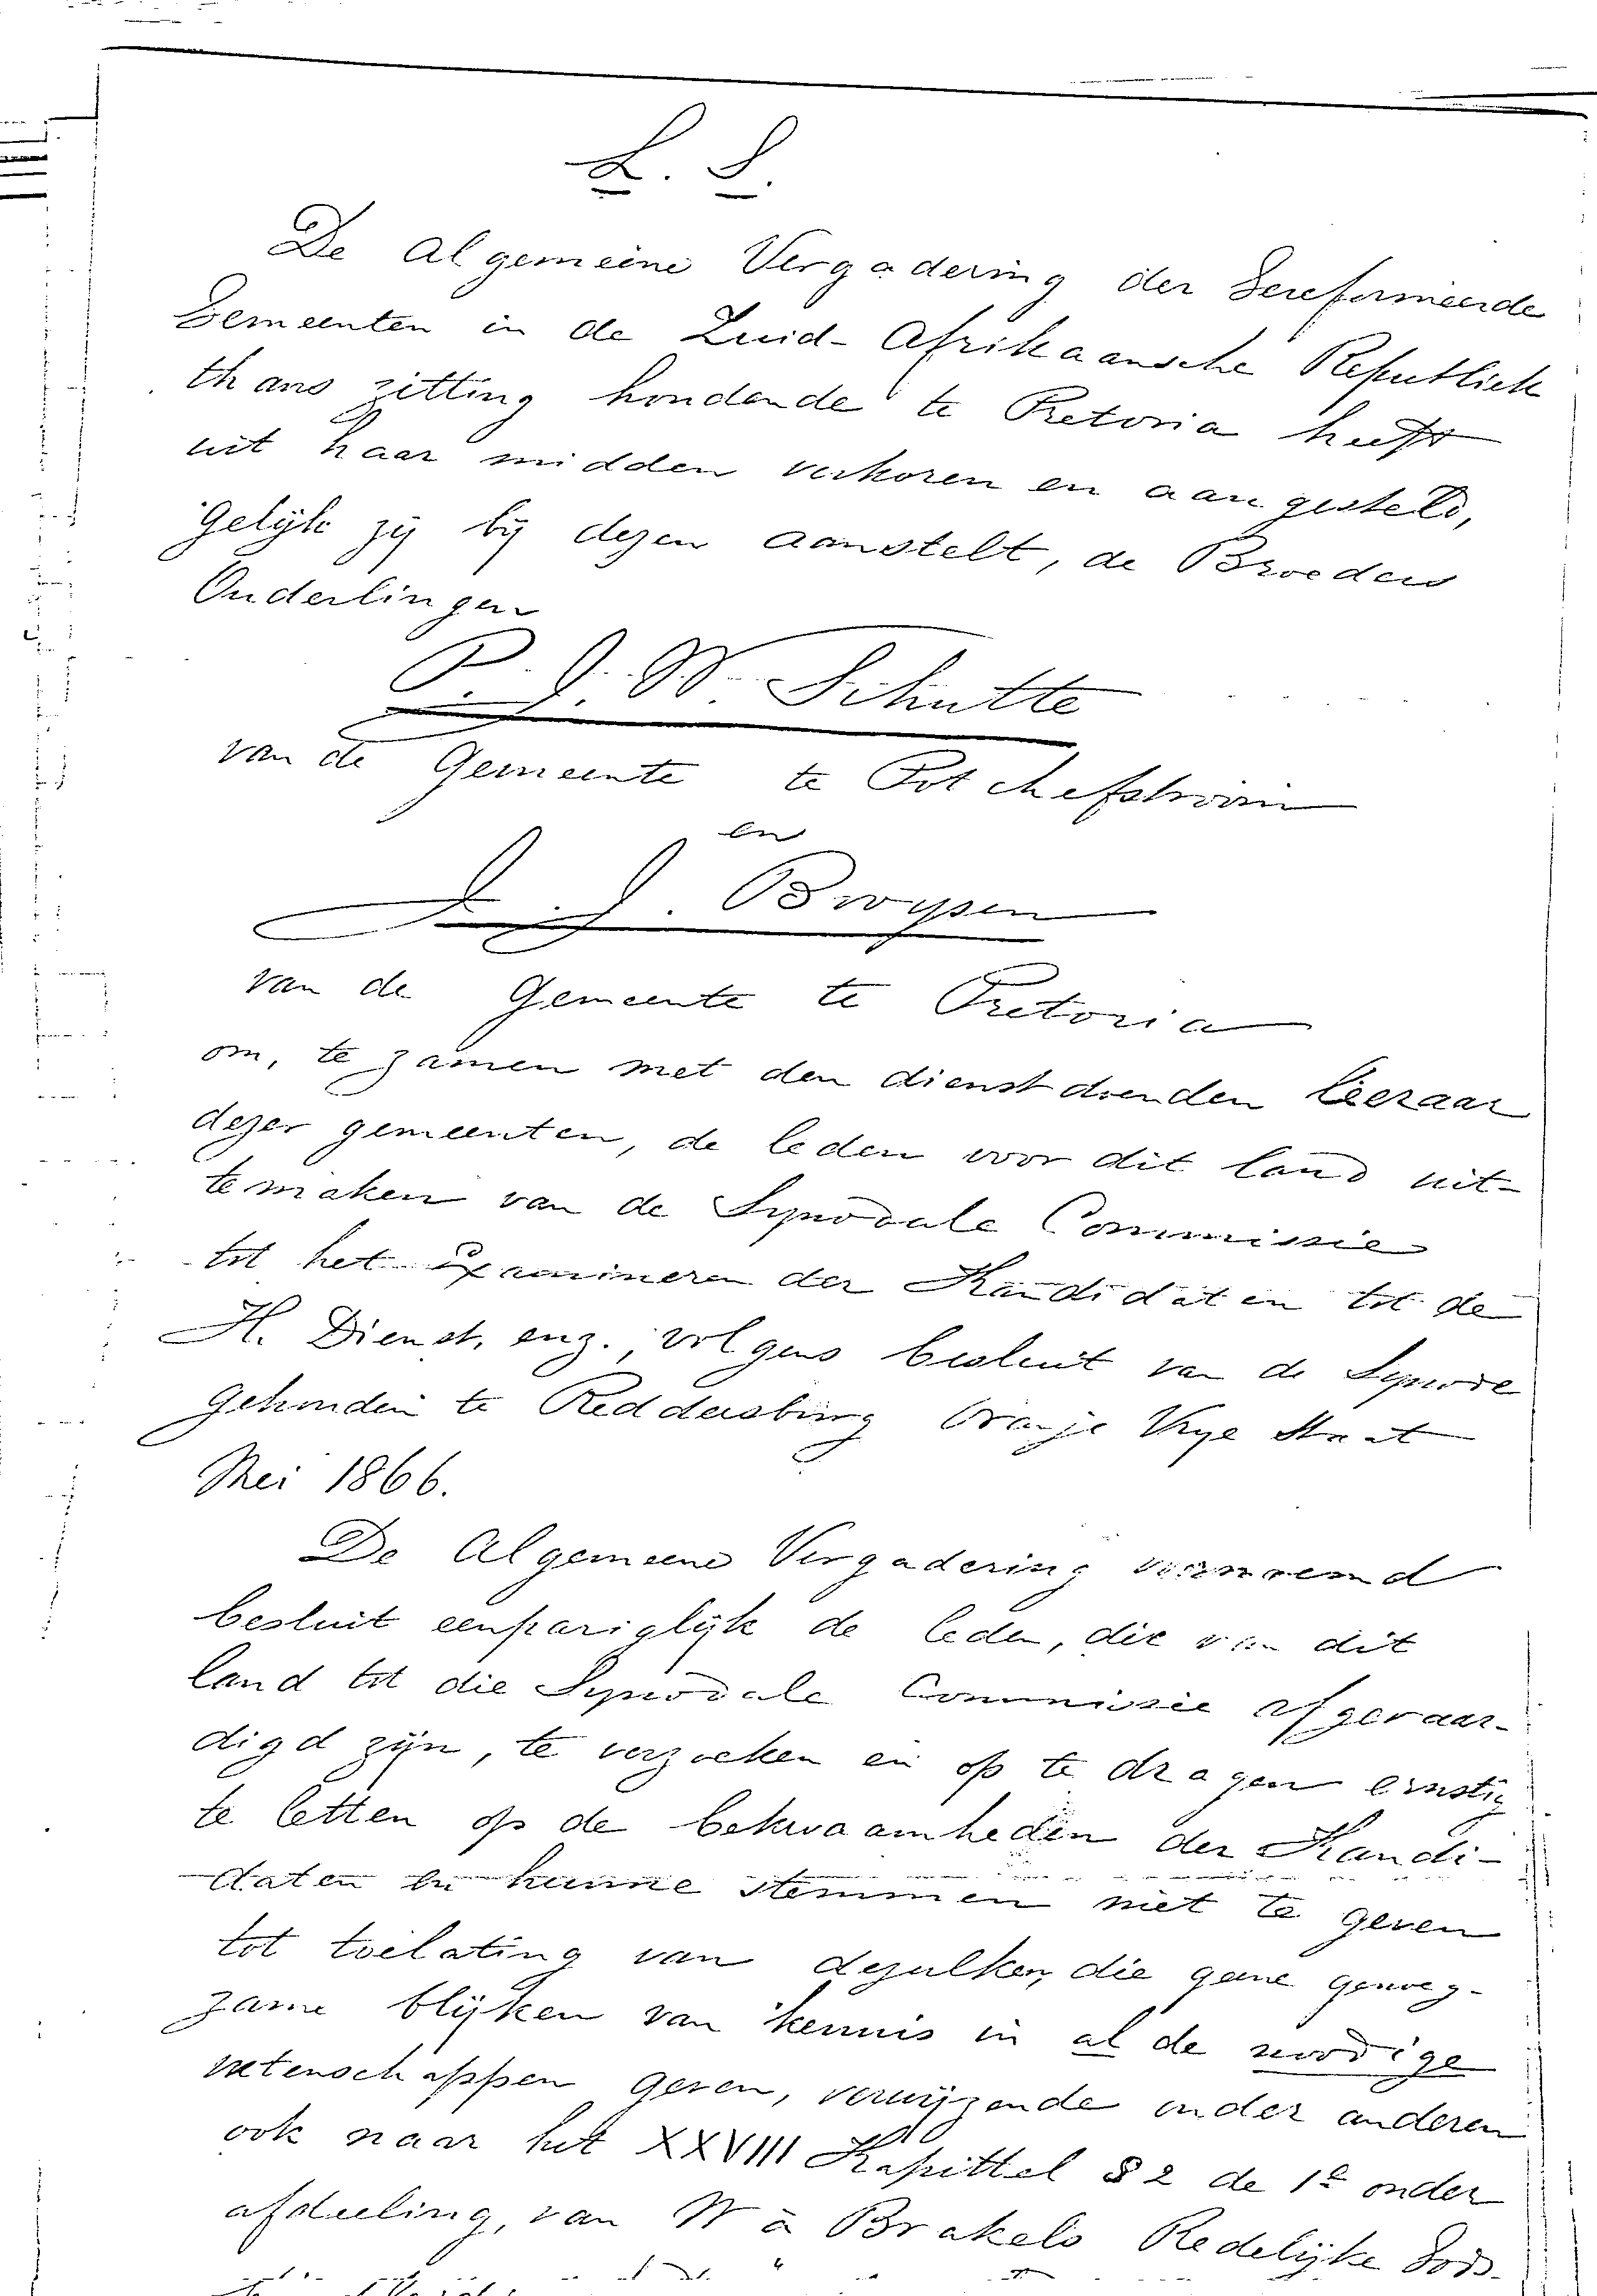 L. S.
De Algemeene Vergadering der Gereformeerde
Gemeenten in de Zuid-Afrikaansche Republiek
thans zitting houdende te Pretoria heeft
uit haar midden verkoren en aangesteld,
Gelijk zij bij dezen aanstelt, de Broeders
Ouderlingen
P. J. W. Schutte
van de Gemeente te Potchefstroom
en
J. J. Bruijsen
van de Gemeente te Pretoria
om, te zamen met den dienstdoenden Leeraar
dezer gemeenten, de leden voor dit land uit-
te maken van de Synodale Commissie
tot het Examineren der Kandidaten tot de
H. Dienst, enz., volgens besluit van de Synode
Gehouden te Reddersburg Oranje Vrije Staat
Mei 1866.
De Algemeene Vergadering voornoemd
besluit eenpariglijk de leden, die van dit
land tot die Synodale Commissie afgevaar-
digd zijn, te verzoeken en op te dragen ernstig
te letten op de bekwaamheden der Kandi-
daten en hunne stemmen niet te geven
tot toelating van dezulken, die geene genoeg-
zame blijken van kennis in al de noodige
wetenschappen geven, verwijzende onder anderen
ook naar het XXVIII Kapittel § 2 de 1e onder
afdeeling, van W à Brakels Redelijke Gods-